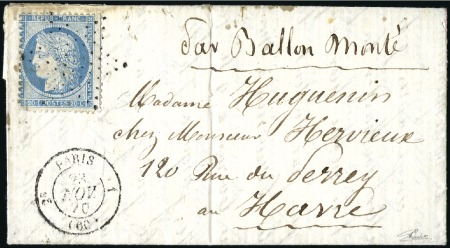 REPUB. FRANC.
Par Ballon Monté
Madame Huguenin
chez Monsieur Hervieux
120 Rue du Perrey
au Havre
PARIS
1
NOV
70
(60)